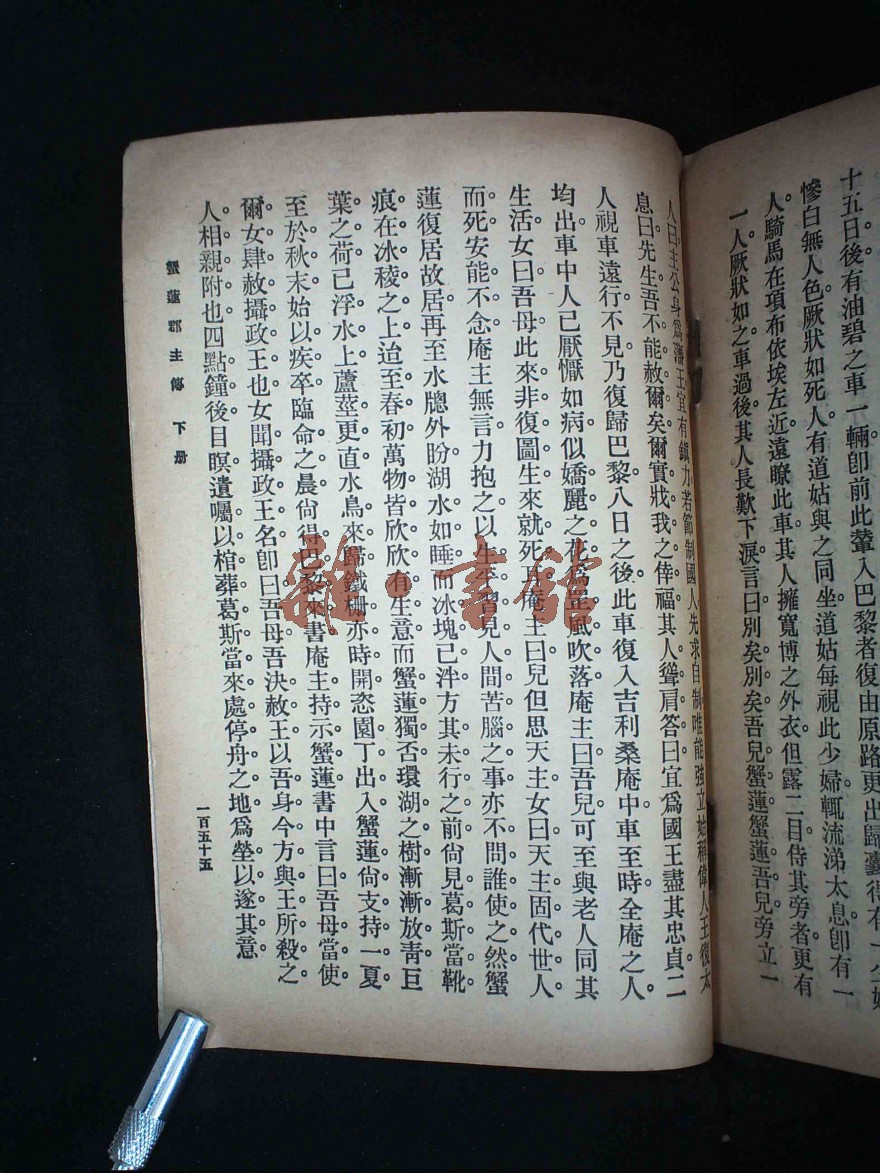 十五日後有油碧之車一輛卽前此輦入巴黎者復由原路更出歸臺得有一少婦
慘白無人色厥狀如死人有道姑與之同坐道姑每視此少婦輒流涕太息卽有一
人騎馬在項布依埃左近遠瞭此車其人擁寬博之外衣但露二目侍其旁者更有
一人厥狀如之車過後其人長歎下淚言曰別矣別矣吾兒蟹蓮蟹蓮吾兒旁立一
人曰主公身爲藩王宜有鎭力若節制國人先求自制唯能強立始稱偉人王復太
息曰先生吾不能赦爾矣爾實戕我之倖福其人聳肩答曰宜爲國王盡其忠貞二
人視車遠行不見乃復歸巴黎八日之後此車復入吉利桑庵中車至時全庵之人
均出車中人已厭懨如病似嬌麗之花爲罡風吹落庵主曰吾兒可至與老人同其
生活女曰吾母此來非復圖生來就死耳庵主曰兒但思天主女曰天主固代世人
而死安能不念庵主無言力抱之以生平習見人間苦腦之事亦不問誰使之然蟹
蓮復居故居再至水牕外盼湖水如睡而冰塊已泮方其未行之前尙見葛斯當靴
痕在冰稜之上迨至春初萬物皆欣欣有生意而蟹蓮獨否環湖之樹漸漸放靑巨
葉之荷已浮水上蘆莖更直水鳥來歸鐵柵亦時開恣園丁出入蟹蓮尙支持一夏
至於秋末始以疾卒臨命之晨尙得巴黎來書庵主持示蟹蓮書中言曰吾母當使
爾女肆赦攝政王也女聞攝政王名卽曰吾母吾決赦王以吾身今方與王所殺之
人相親附也四點鐘後目瞑遺囑以棺葬葛斯當來處停舟之地爲塋以遂其意
蟹蓮郡主傳 下册
一百五十五
雜·書館